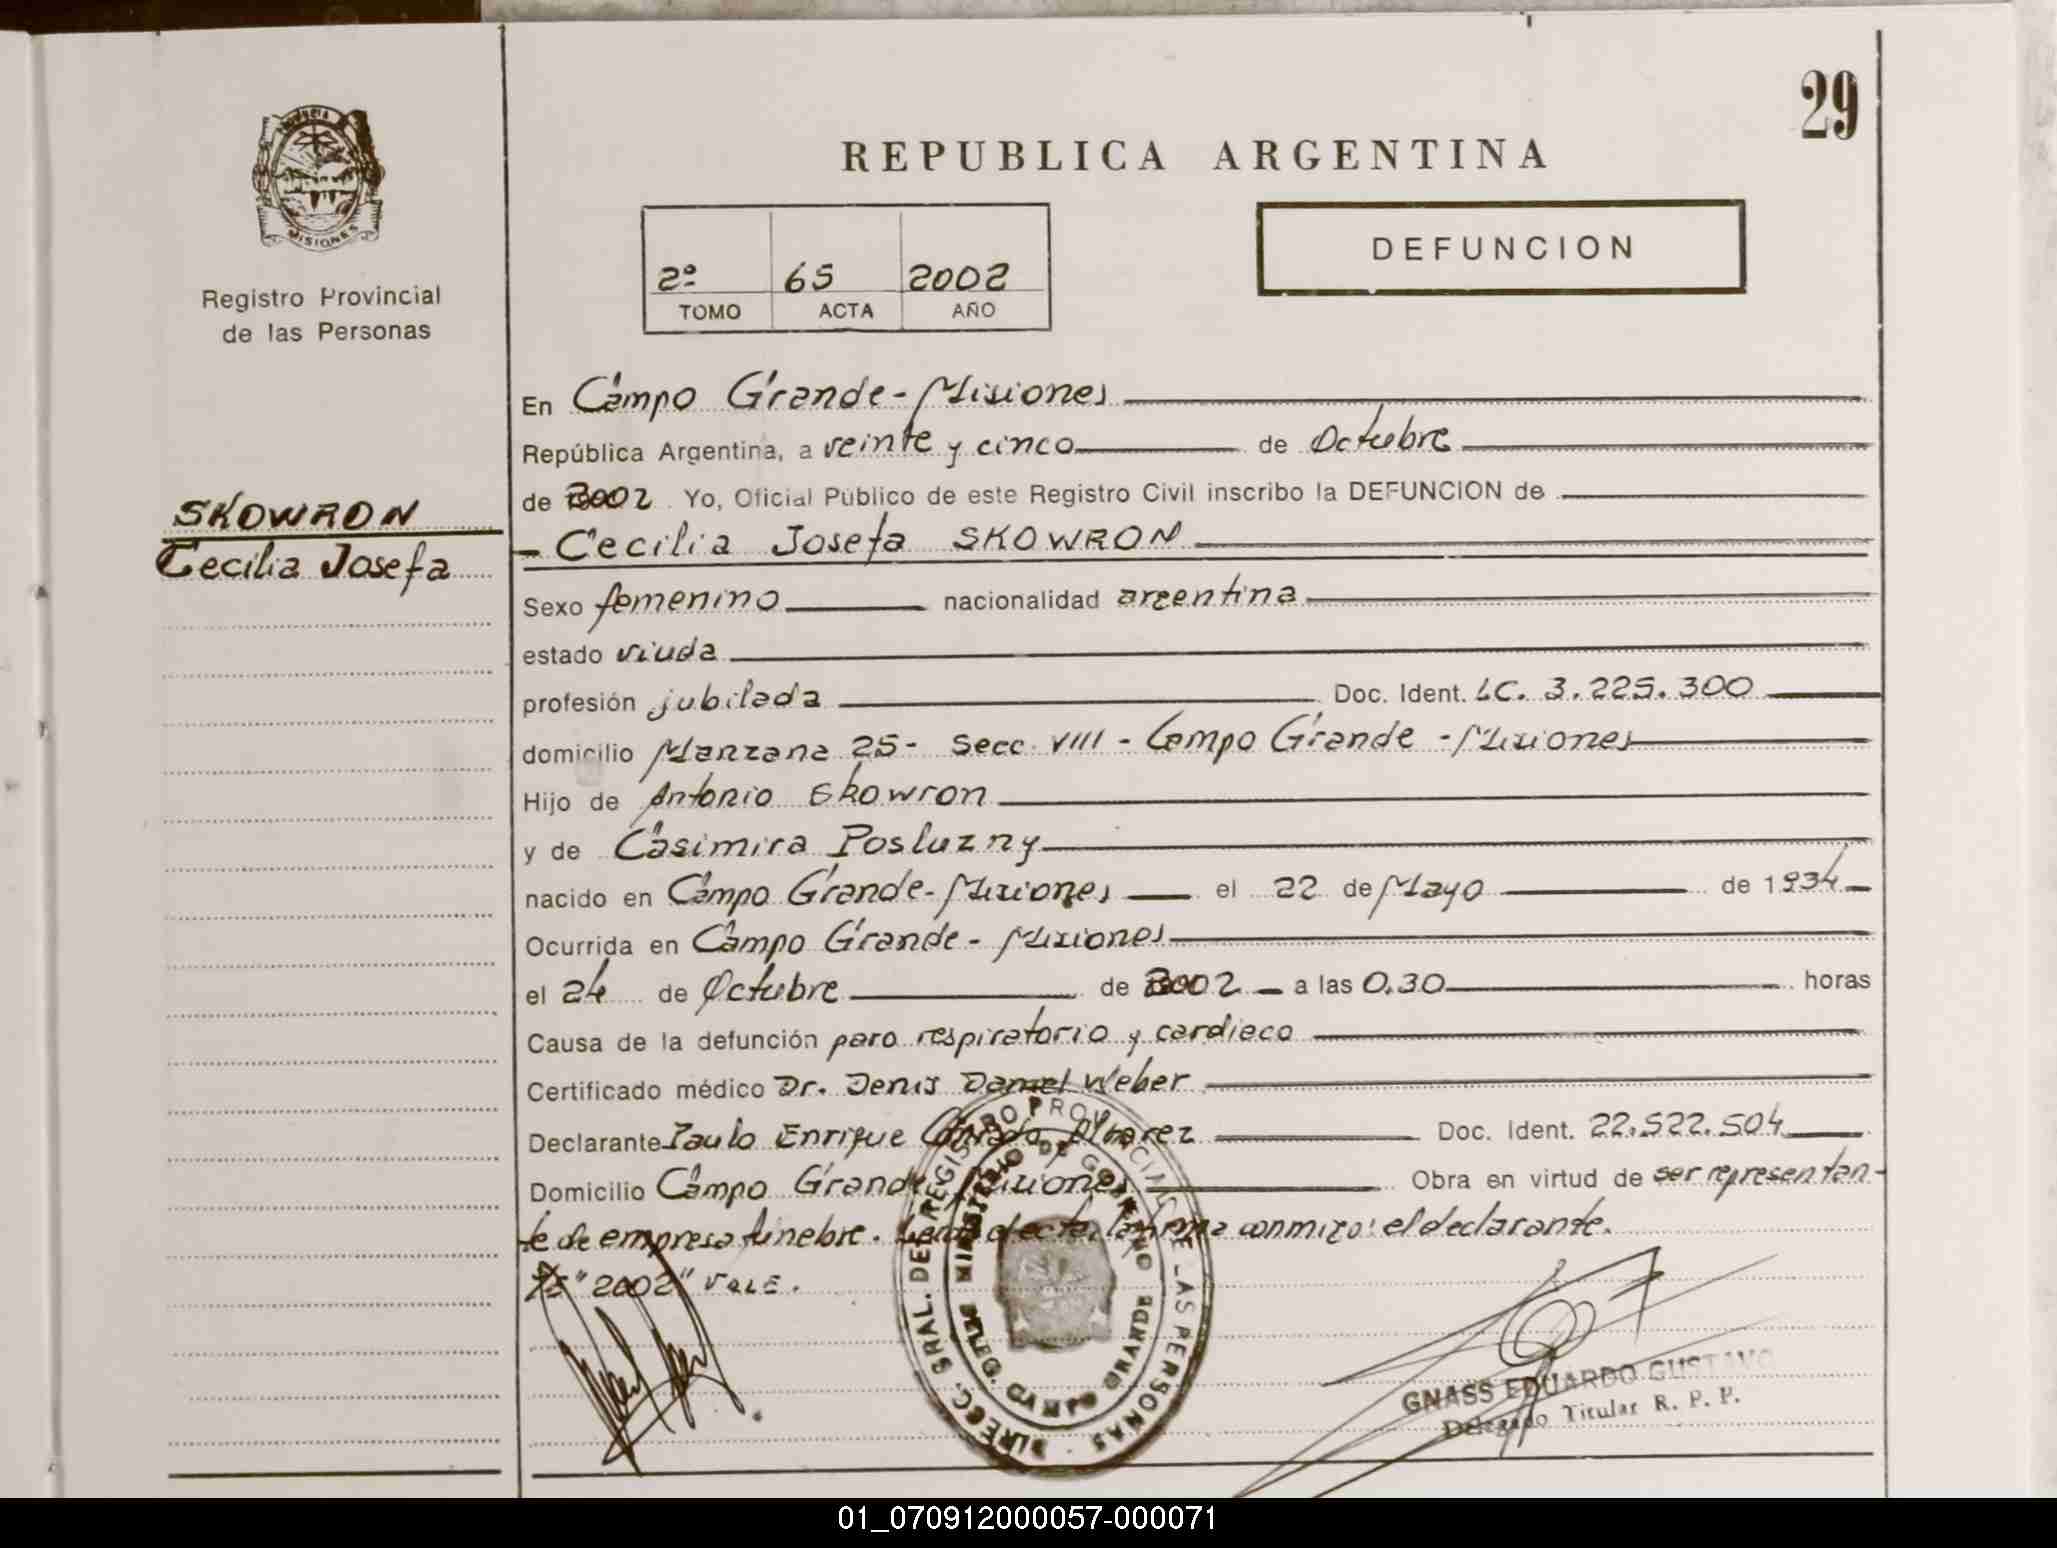 29
REPUBLICA ARGENTINA
PROVINCIA
MISIONES
Registro Provincial
de las Personas
2º 65 2002
TOMO ACTA AÑO
DEFUNCION
En Campo Grande - Misiones
República Argentina, a veinte y cinco de Octubre
de 2002 Yo, Oficial Público de este Registro Civil inscribo la DEFUNCION de
SKOWRON
Cecilia Josefa
- Cecilia Josefa SKOWRON
Sexo femenino nacionalidad argentina
estado viuda
profesión jubilada Doc. Ident. LC. 3.225.300
domicilio Manzana 25- Secc. VIII - Campo Grande - Misiones
Hijo de Antonio Skowron
y de Casimira Posluzny
nacido en Campo Grande - Misiones el 22 de Mayo de 1934
Ocurrida en Campo Grande - Misiones
el 24 de Octubre de 2002 a las 0.30 horas
Causa de la defunción paro respiratorio y cardiaco
Certificado médico Dr. Denis Daniel Weber
Declarante Paulo Enrique Alvarez Doc. Ident. 22.522.504
Domicilio Campo Grande Misiones Obra en virtud de ser representan-
te de empresa fúnebre. Leida el acta, la firma conmigo: el declarante.
"2002" VALE.
DIRECC. GRAL. DEL REGISTRO PROVINCIAL DE LAS PERSONAS
MINISTERIO DE GOBIERNO
DELEG. CAMPO GRANDE
GNASS EDUARDO GUSTAVO
Delegado Titular R. P. P.
01_070912000057-000071